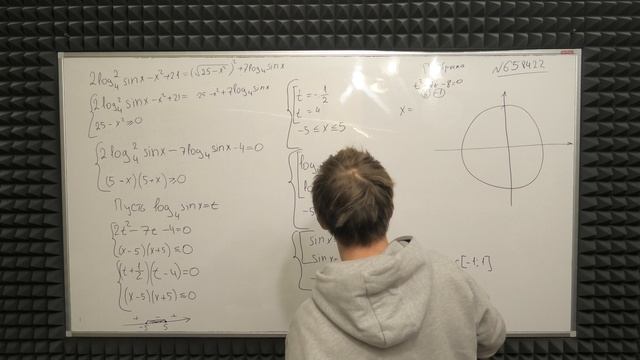 2log₄² sinx - x² + 21 = (√(25-x²))² + 7log₄ sinx
2log₄² sinx - x² + 21 = 25 - x² + 7log₄ sinx
25 - x² ≥ 0
2log₄² sinx - 7log₄ sinx - 4 = 0
(5-x)(5+x) ≥ 0
Пусть log₄ sinx = t
2t² - 7t - 4 = 0
(x-5)(x+5) ≤ 0
(t + 1/2)(t - 4) = 0
(x-5)(x+5) ≤ 0
+ - +
-5 5
t = -1/2
t = 4
-5 ≤ x ≤ 5
log
-5
sinx
sinx
x =
№658422
-8=0
[-1;1]